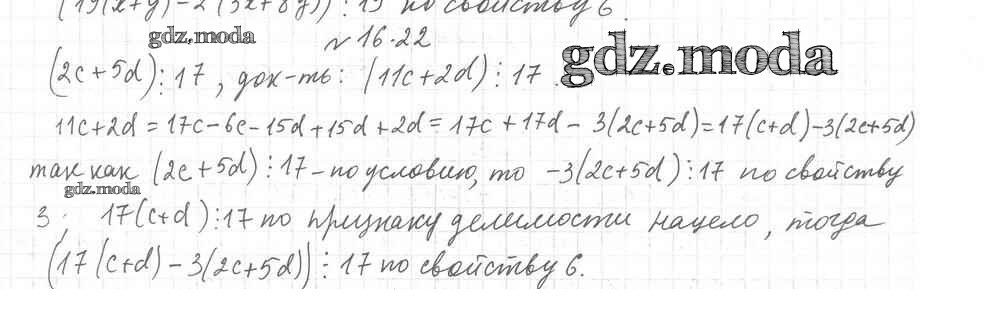 (19(x+y)-2(3x+8y))⋮19 по свойству 6.
gdz.moda
№ 16.22
gdz.moda
(2c+5d)⋮17, док-ть: (11c+2d)⋮17.
11c+2d = 17c-6c-15d+15d+2d = 17c+17d-3(2c+5d)=17(c+d)-3(2c+5d)
так как (2c+5d)⋮17 - по условию, то -3(2c+5d)⋮17 по свойству
gdz.moda
3; 17(c+d)⋮17 по признаку делимости нацело, тогда
(17(c+d)-3(2c+5d))⋮17 по свойству 6.